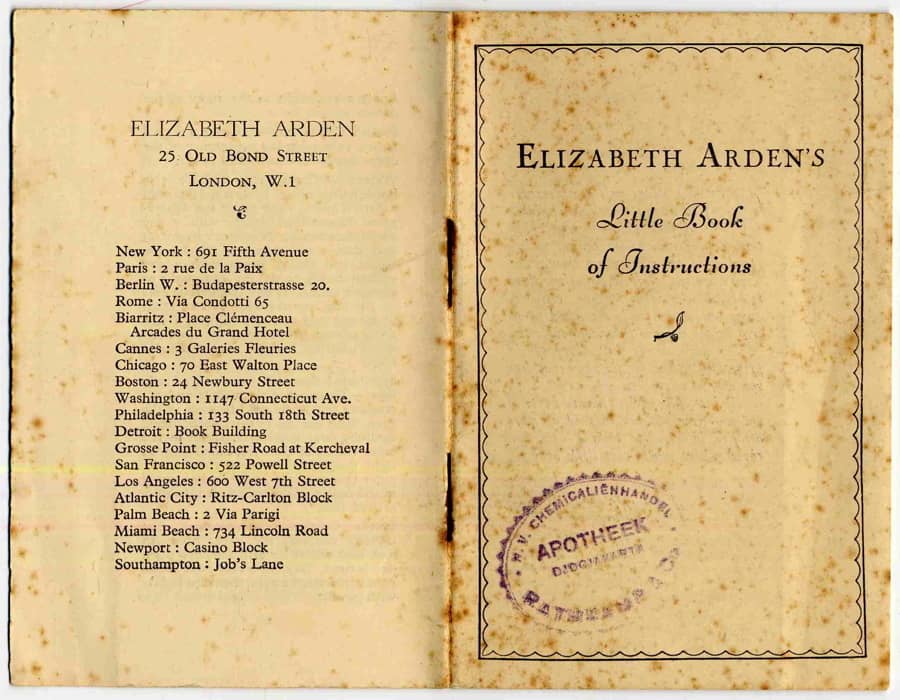 ELIZABETH ARDEN
25 OLD BOND STREET
LONDON, W.1
New York : 691 Fifth Avenue
Paris : 2 rue de la Paix
Berlin W. : Budapesterstrasse 20.
Rome : Via Condotti 65
Biarritz : Place Clémenceau
Arcades du Grand Hotel
Cannes : 3 Galeries Fleuries
Chicago : 70 East Walton Place
Boston : 24 Newbury Street
Washington : 1147 Connecticut Ave.
Philadelphia : 133 South 18th Street
Detroit : Book Building
Grosse Point : Fisher Road at Kercheval
San Francisco : 522 Powell Street
Los Angeles : 600 West 7th Street
Atlantic City : Ritz-Carlton Block
Palm Beach : 2 Via Parigi
Miami Beach : 734 Lincoln Road
Newport : Casino Block
Southampton : Job's Lane
ELIZABETH ARDEN'S
Little Book
of Instructions
N.V. CHEMICALIËNHANDEL
APOTHEEK
DJOCJAKARTA
RATHKAMP & Co